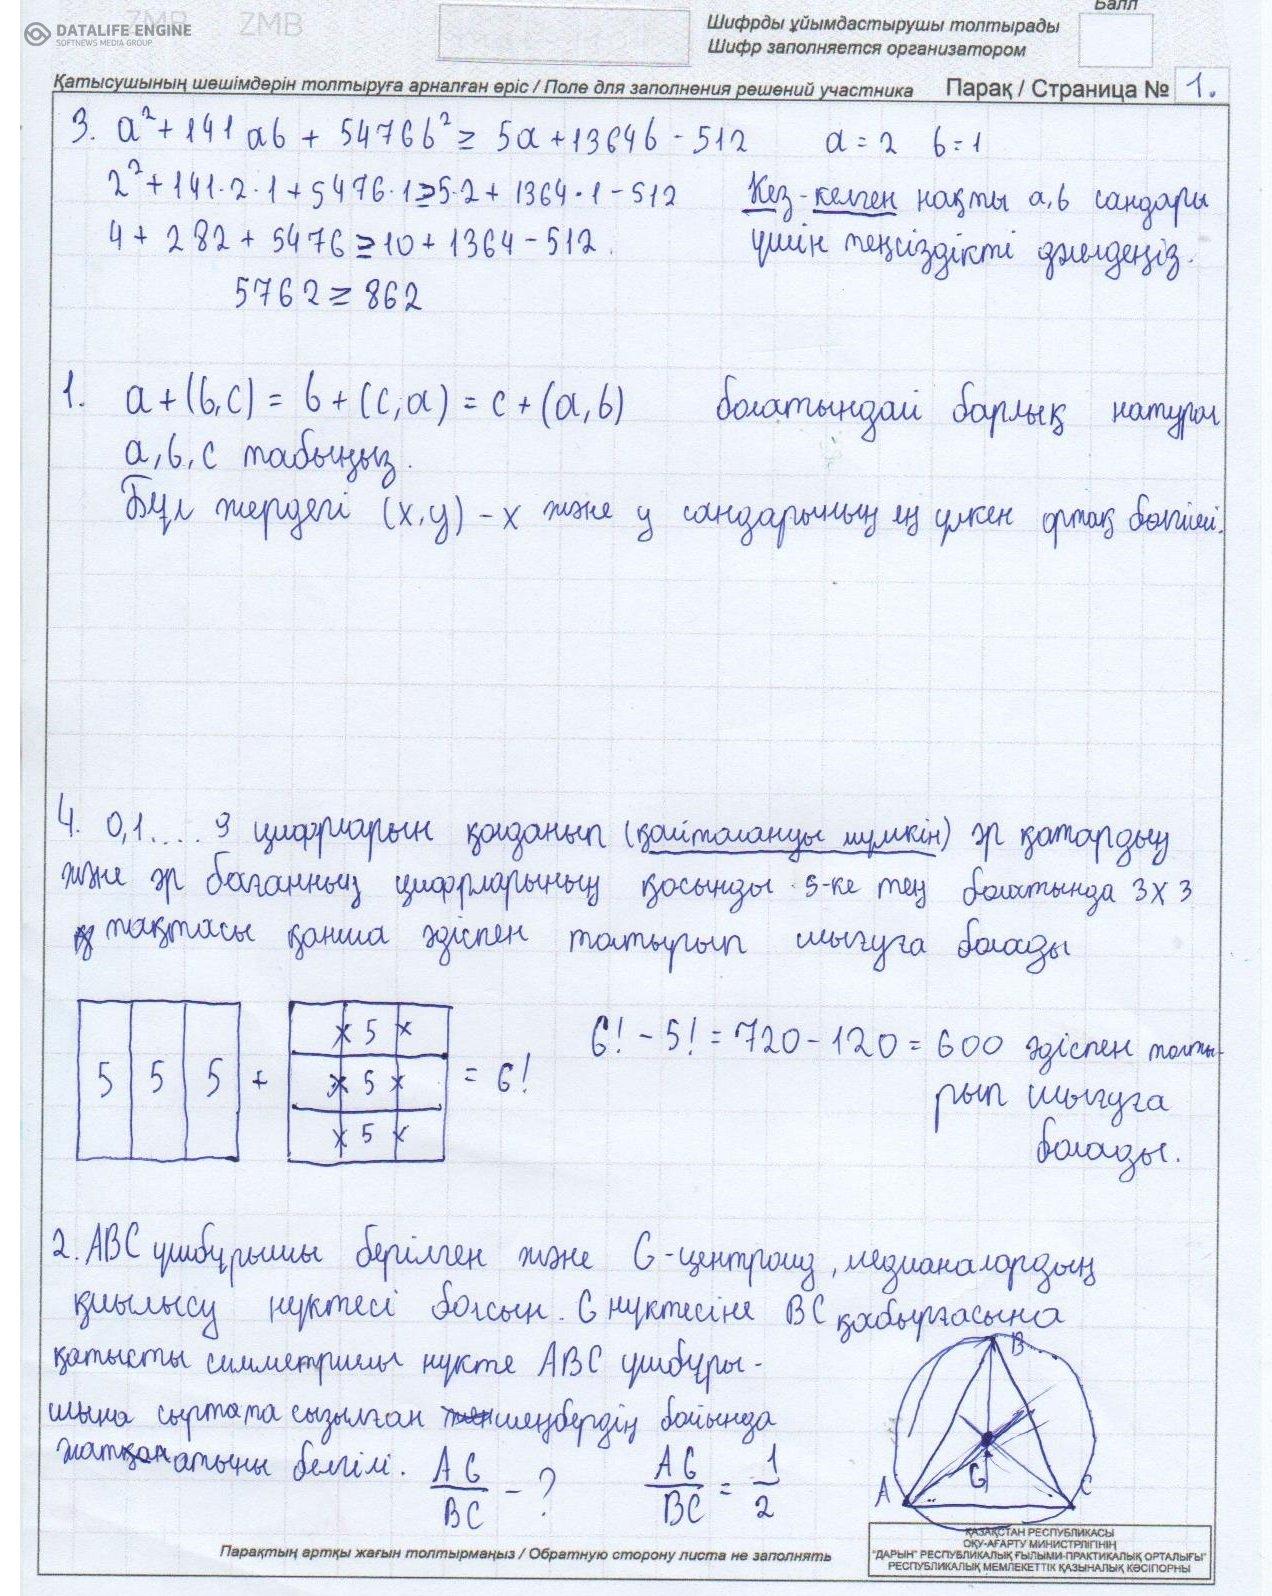 DATALIFE ENGINE
SOFTNEWS MEDIA GROUP
ZMB ZMB
Балл
Шифрды ұйымдастырушы толтырады
Шифр заполняется организатором
Қатысушының шешімдерін толтыруға арналған өріс / Поле для заполнения решений участника Парақ / Страница № 1.
3. a² + 141 ab + 5476b² ≥ 5a + 1364b - 512 a = 2 b = 1
2² + 141·2·1 + 5476·1 ≥ 5·2 + 1364·1 - 512 Кез-келген нақты a, b сандары
4 + 282 + 5476 ≥ 10 + 1364 - 512. үшін теңсіздікті дәлелдеңіз.
5762 ≥ 862
1. a + (b,c) = b + (c,a) = c + (a,b) болатындай барлық натурал
a, b, c табыңыз.
Бұл жердегі (x,y) - x және y сандарының ең үлкен ортақ бөлгіші.
4. 0,1....9 цифрларын қолданып (қайталануы мүмкін) әр қатардың
және әр бағанның цифрларының қосынды 5-ке тең болатында 3x3
тақтасы қанша әдіспен толтырып шығуға болады
5 5 5 + x 5 x x 5 x x 5 x = 6! 6! - 5! = 720 - 120 = 600 әдіспен толты-
рып шығуға
болады.
2. ABC үшбұрышы берілген және G - центроид, медианалардың
қиылысу нүктесі болсын. G нүктесіне BC қабырғасына
қатысты симметриялы нүкте ABC үшбұры-
шына сырттата сызылған шеңбердің бойында
жатқан атыны белгілі. AG/BC - ? AG/BC = 1/2
B
A G C
ҚАЗАҚСТАН РЕСПУБЛИКАСЫ
ОҚУ-АҒАРТУ МИНИСТРЛІГІНІҢ
"ДАРЫН" РЕСПУБЛИКАЛЫҚ ҒЫЛЫМИ-ПРАКТИКАЛЫҚ ОРТАЛЫҒЫ"
РЕСПУБЛИКАЛЫҚ МЕМЛЕКЕТТІК ҚАЗЫНАЛЫҚ КӘСІПОРНЫ
Парақтың артқы жағын толтырмаңыз / Обратную сторону листа не заполнять